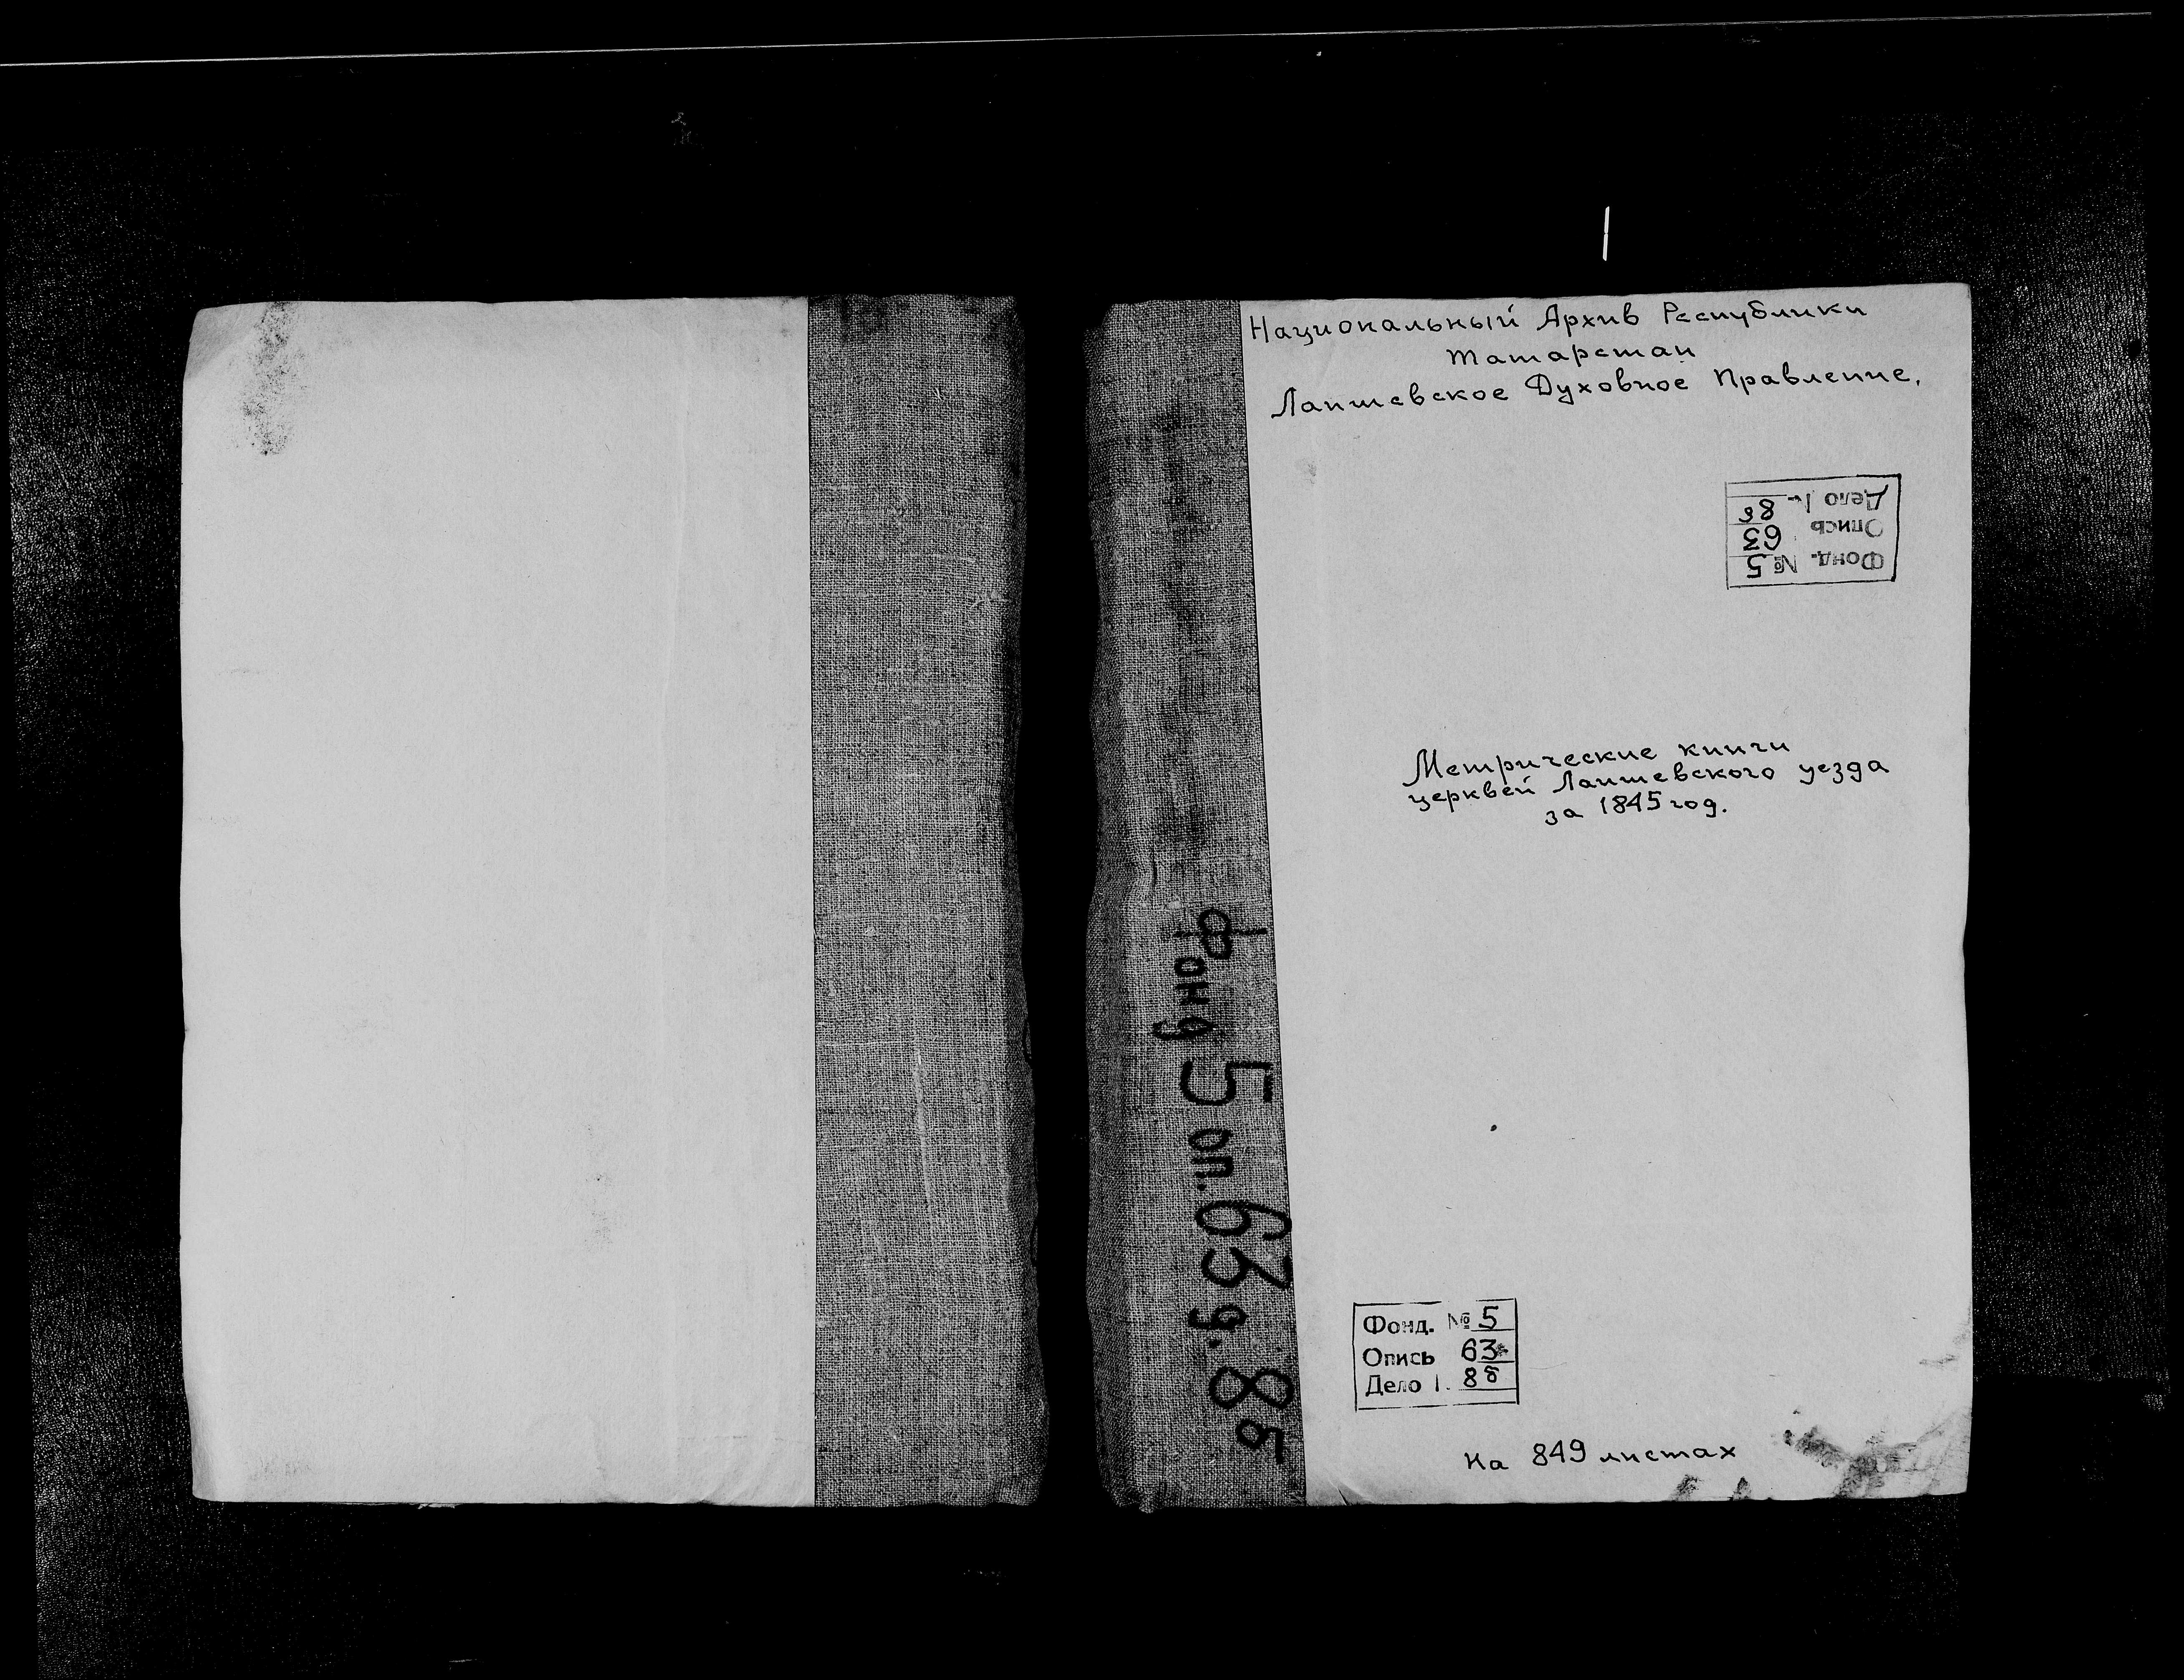 Национальный Архив Республики
Татарстан
Лаишевское Духовное Правление.
Фонд. № 5
Опись 63
Дело
Метрические книги
церквей Лаишевского уезда
за 1845 год.
Фонд 5 оп. 63 д. 85
Фонд. № 5
Опись 63
Дело
на 849 листах